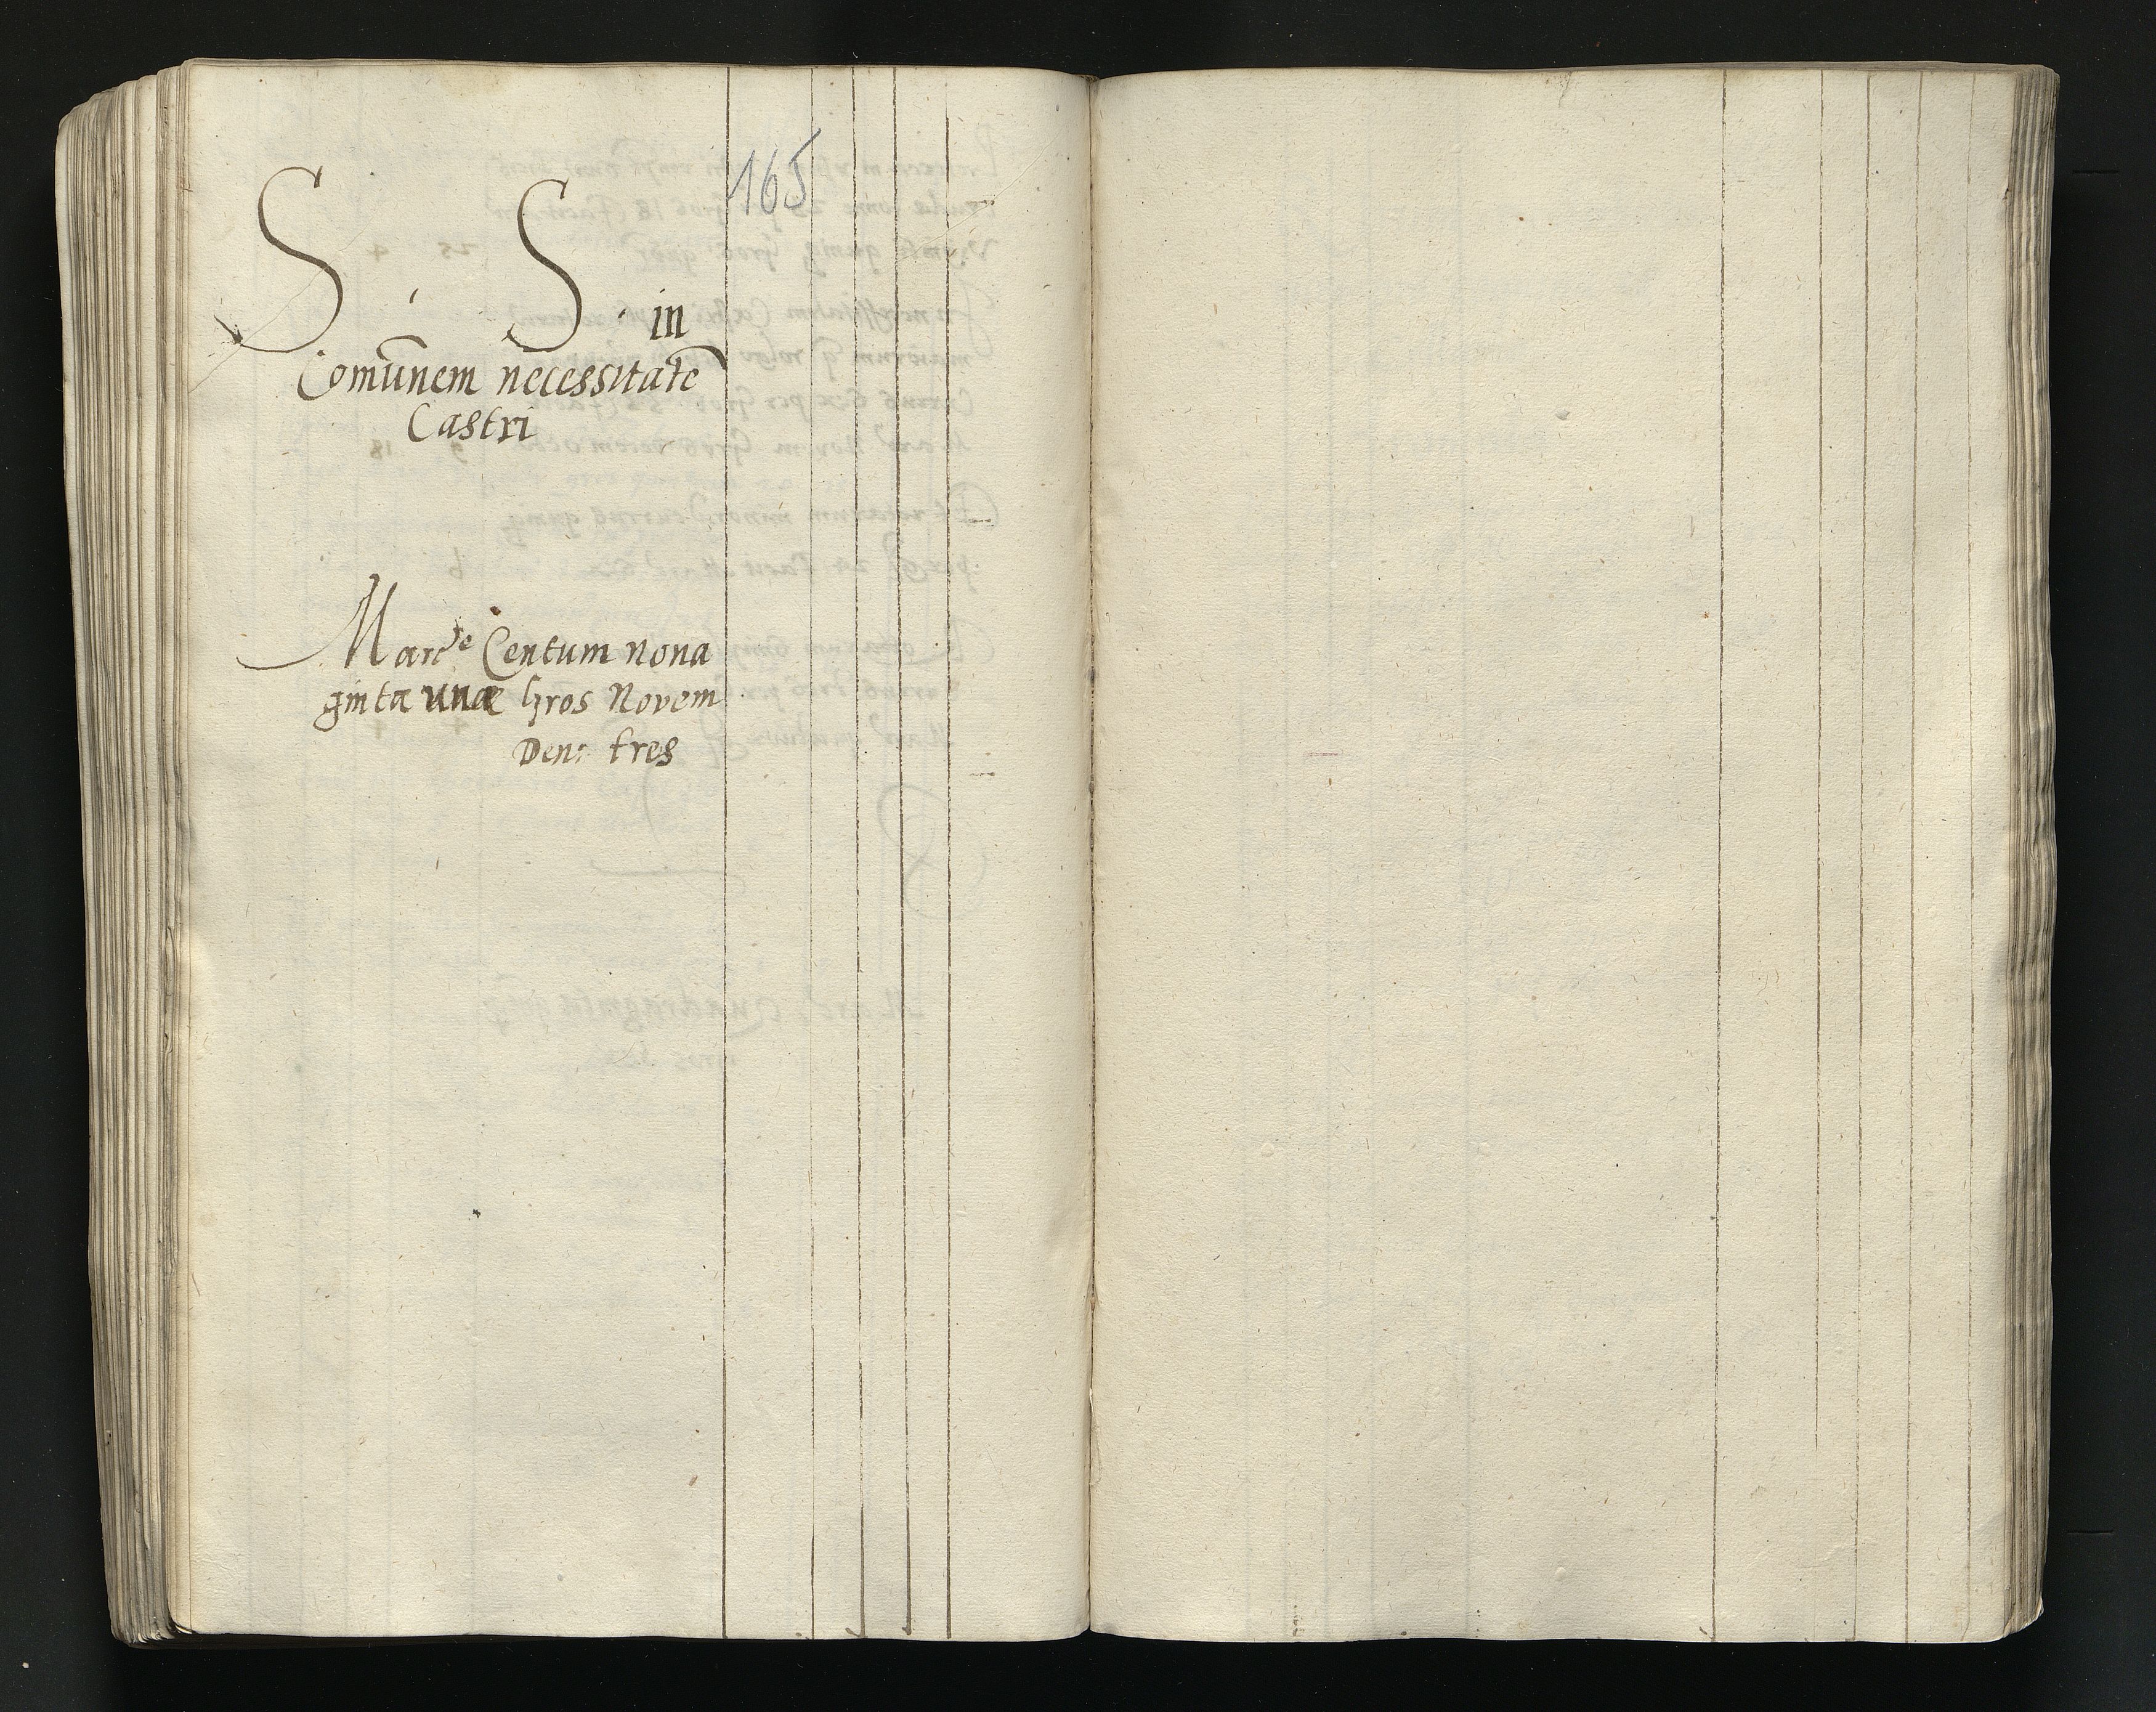 165
S . S . in
Com̄unem necessitatē
Castri
Marcae Centum nona
ginta unae Gros Novem
Den: tres